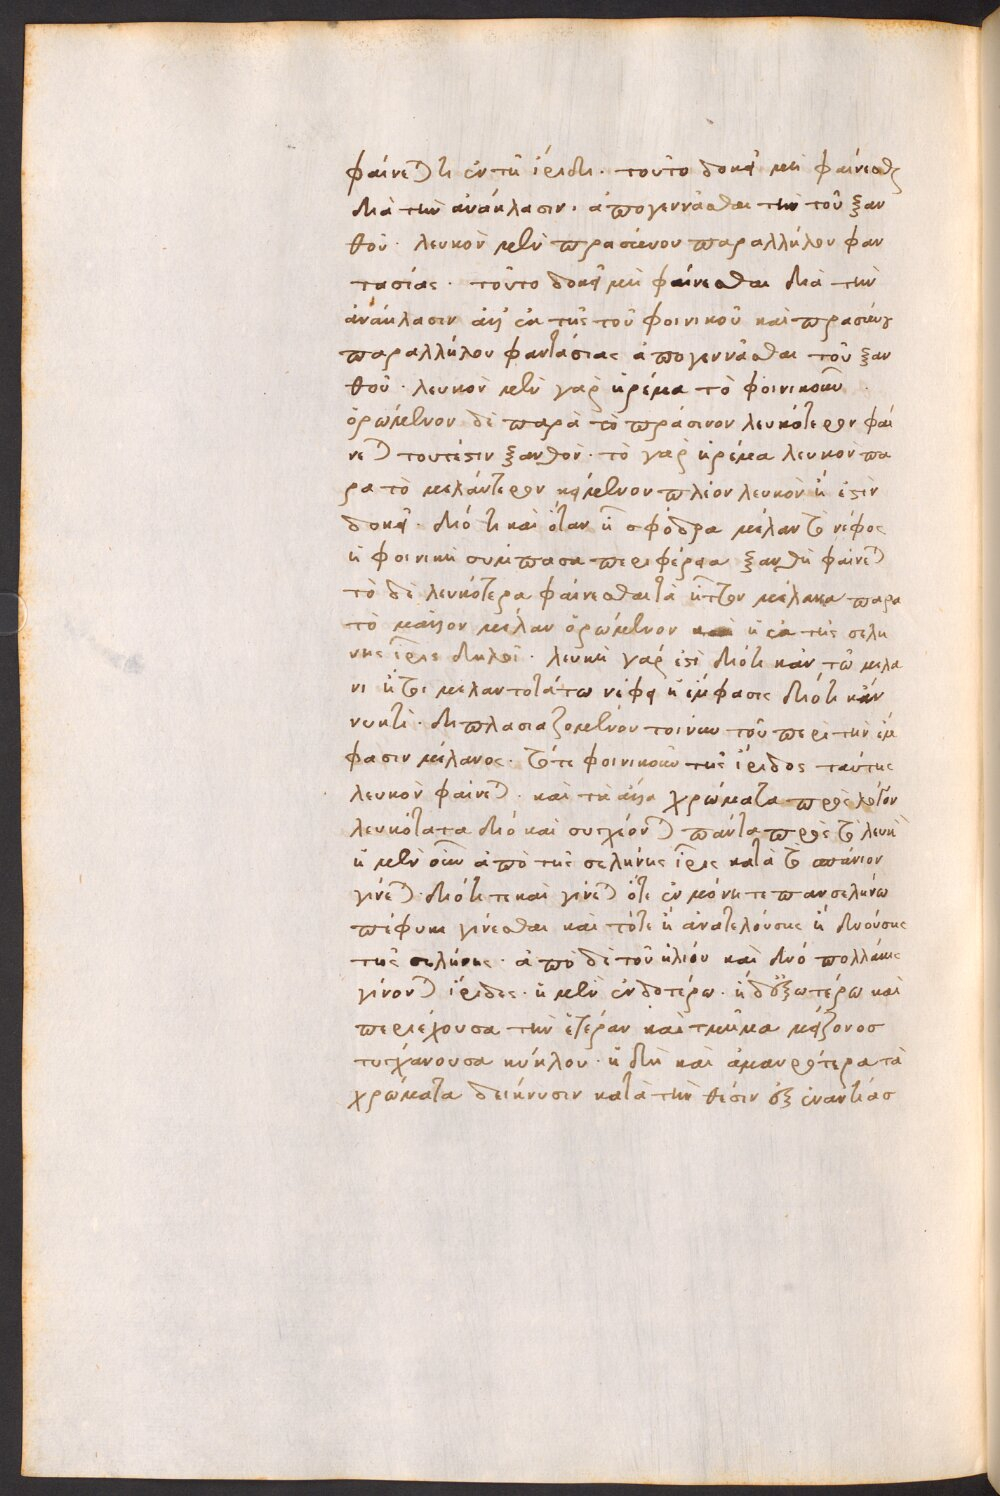 φαίνεται τι ἐν τῇ ἴριδι· τοῦτο δοκεῖ μὴ φαίνεσθαι
διὰ τὴν ἀνάκλασιν· ἀπογεννᾶσθαι την τοῦ ξαν
θοῦ· λευκὸν μὲν πρασίνου παραλλήλου φαν
τασίας· τοῦτο δοκεῖ μὴ φαίνεσθαι διὰ τὴν
ἀνάκλασιν ἀλλ' ἐκ τῆς τοῦ φοινικοῦ καὶ πρασίνου
παραλλήλου φαντασίας ἀπογεννᾶσθαι τοῦ ξαν
θοῦ· λευκὸν μὲν γὰρ ἠρέμα τὸ φοινικοῦν
ὁρώμενον δὲ παρὰ τὸ πράσινον λευκότερον φαί
νεται τουτέστιν ξανθὸν· τὸ γὰρ ἠρέμα λευκὸν πα
ρα τὸ μελάντερον κείμενον πλέον λευκὸν ἤ ἐστὶν
δοκεῖ· διότι καὶ ὅταν ᾖ σφόδρα μέλαν τὸ νέφος
ἡ φοινικῆ σύμπασα περιφέρεια ξανθὴ φαίνεται
τὸ δὲ λευκότερα φαίνεσθαι τὰ ἧττον μέλανα παρα
τὸ μᾶλλον μέλαν ὁρώμενον καὶ ἡ ἐκ τῆς σελή
νης ἶρις δηλοῖ· λευκὴ γάρ ἐστὶ διότι κἀν τῷ μέλα
νι ἤτοι μελαντοτάτω νέφει ἡ ἔμφασις διότι κἂν
νυκτὶ· διπλασιαζομένου τοίνυν τοῦ περὶ τὴν ἔμ
φασιν μέλανος· τό τε φοινικοῦν τῆς ἴριδος ταύτης
λευκὸν φαίνεται· καὶ τὰ ἄλλα χρώματα πρὸς τοῦτον
λευκότατα διὸ καὶ συγχέονται πάντα πρὸς τὸ λευκὸν
ἡ μὲν οὖν ἀπὸ τῆς σελήνης ἶρις κατὰ τὸ σπάνιον
γίνεται· διότι τε καὶ γίνεται ὅτε ἐν μόνη τε πανσελήνω
πέφυκε γίνεσθαι καὶ τότε ἢ ἀνατελούσης ἢ δυούσης
τῆς σελήνης· ἀπὸ δὲ τοῦ ἡλίου καὶ δυό πολλάκις
γίνονται ἴριδες· ἡ μὲν ἐνδοτέρω· ἡ δ' ἐξωτέρω καὶ
περιέχουσα τὴν ἑτέραν καὶ τμῆμα μείζονος
τυγχάνουσα κύκλου· ἣ δὴ καὶ ἀμαυρότερα τὰ
χρώματα δείκνυσιν κατὰ τὴν θέσιν ἐξ ἐναντίας